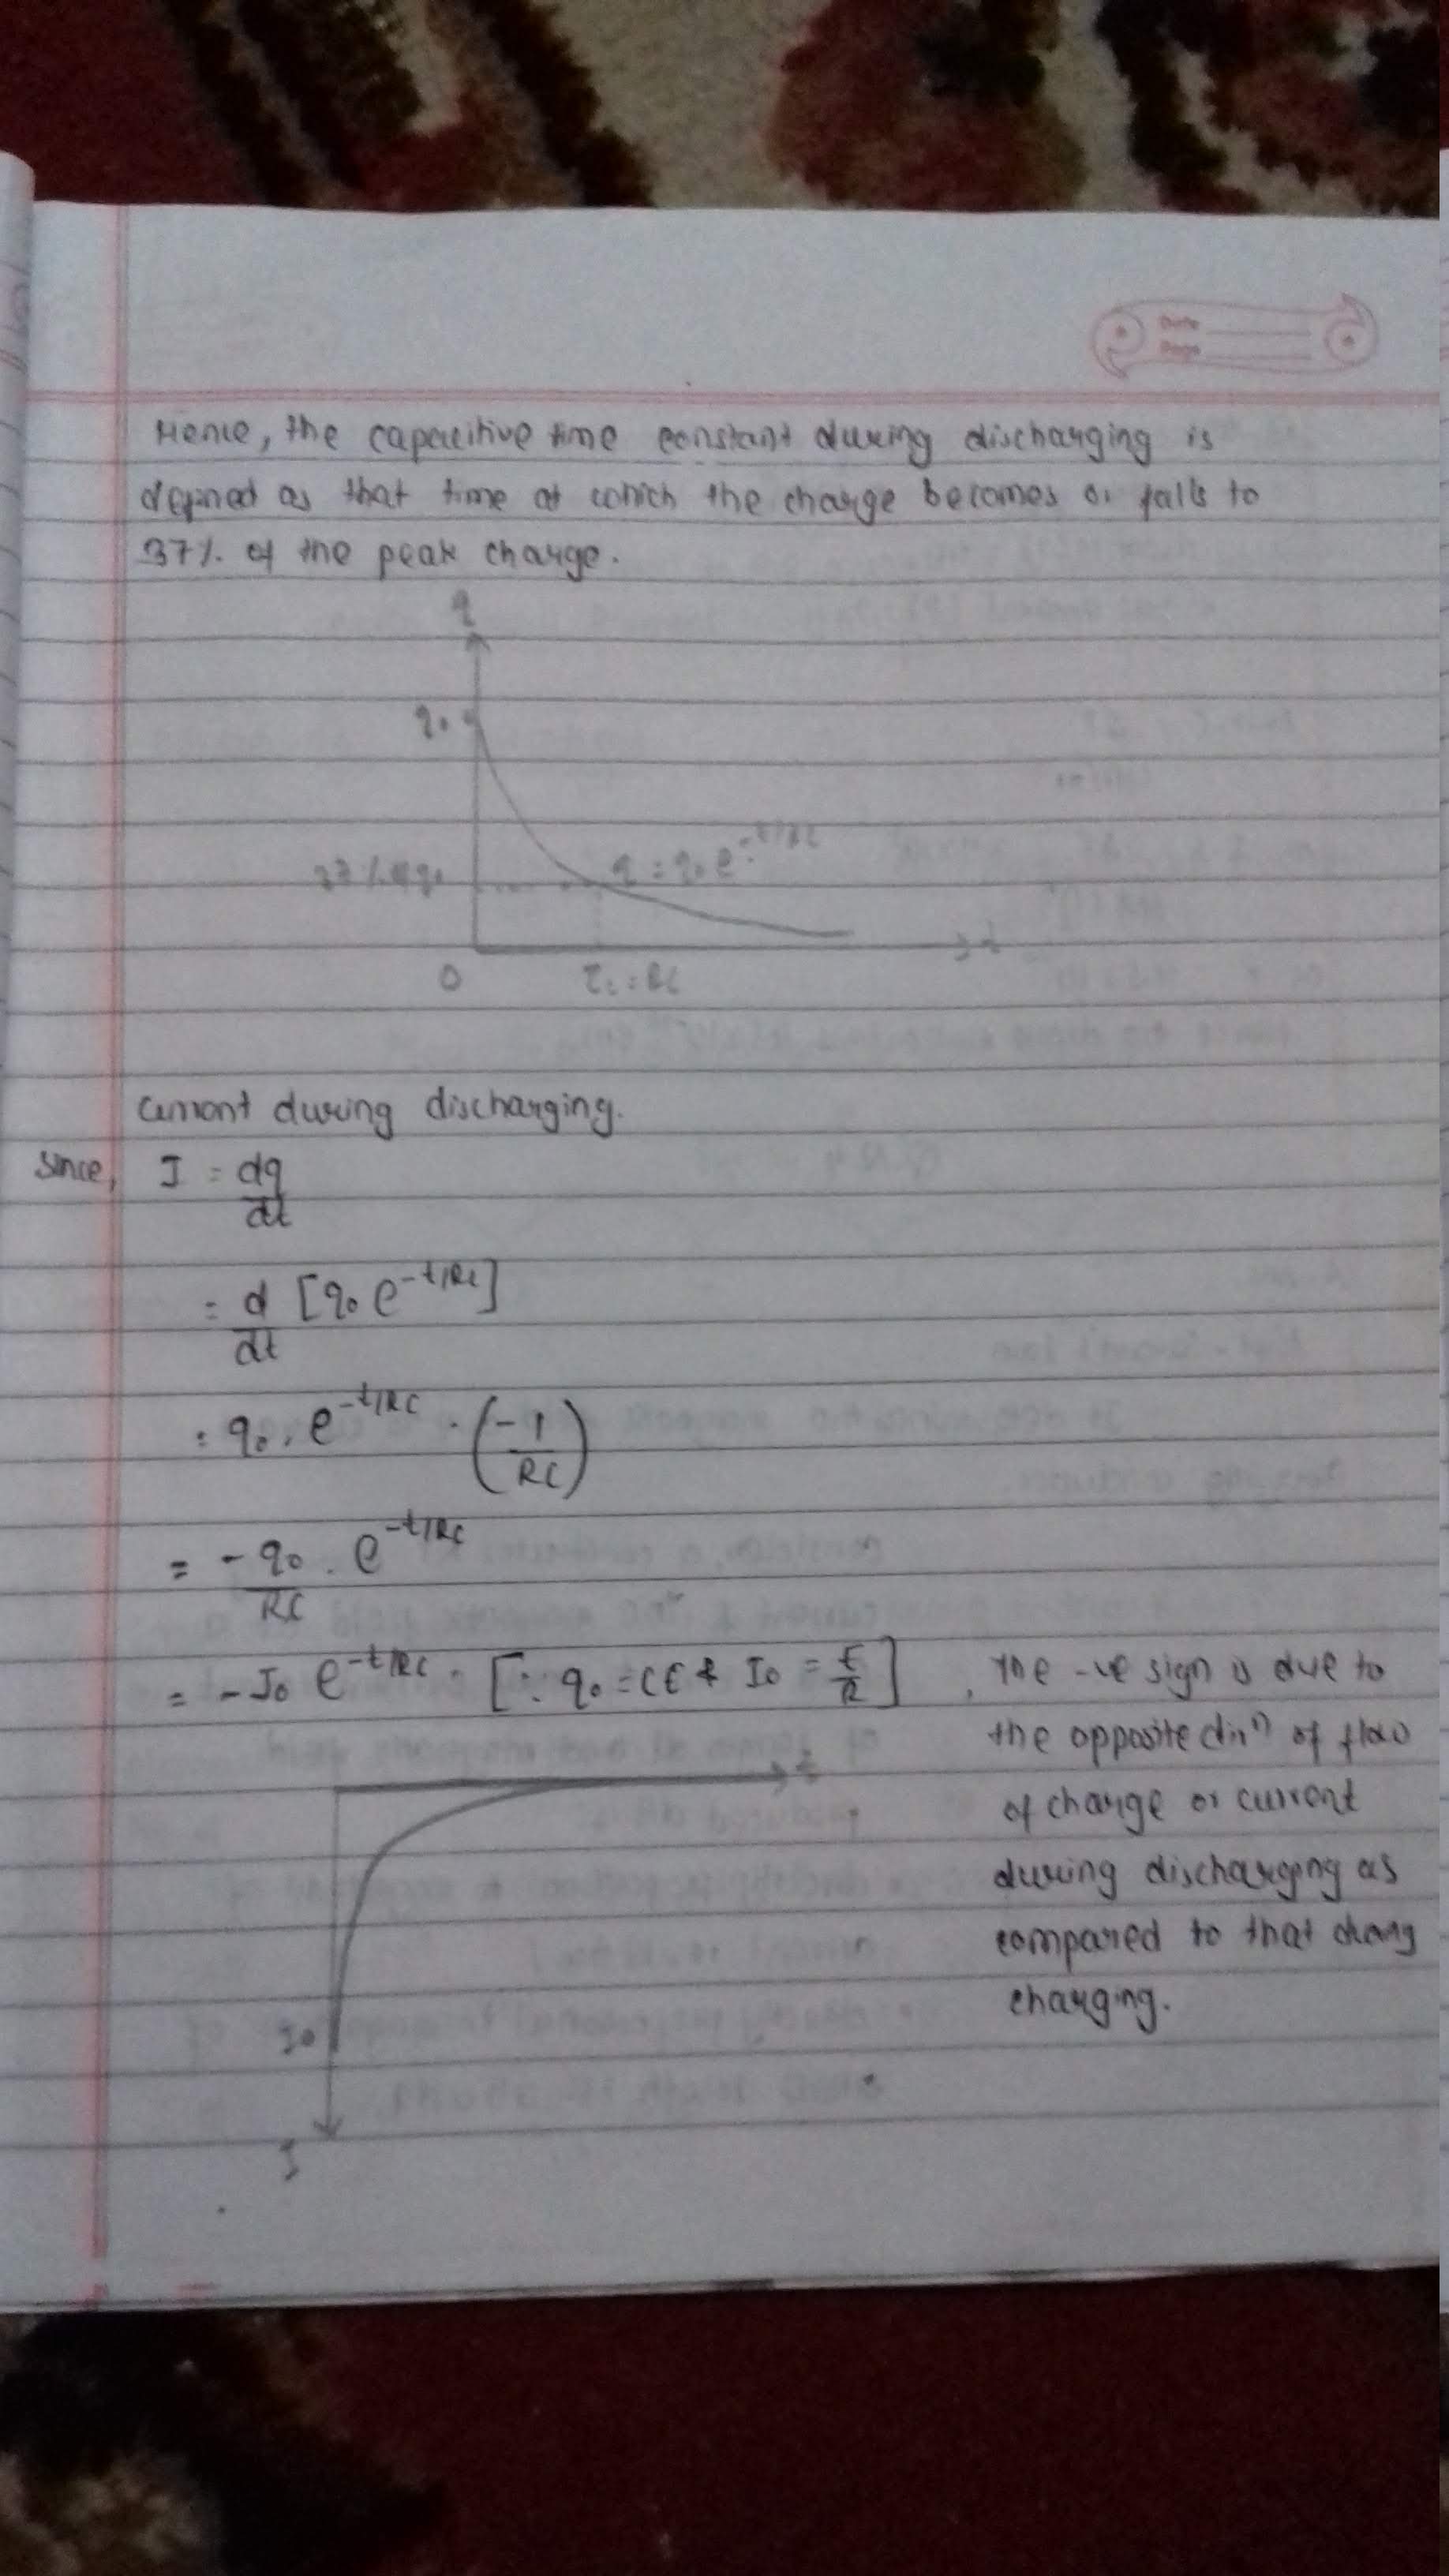 Date
Page
Hence, the capacitive time constant during discharging is
defined as that time at which the charge becomes or falls to
37% of the peak charge.
q
q₀
37% of q₀
q = q₀ e^-t/RC
t
0
τc = RC
Current during discharging.
Since, I = dq/dt
= d/dt [q₀ e^-t/RC]
= q₀ . e^-t/RC . (-1/RC)
= -q₀/RC . e^-t/RC
= -I₀ e^-t/RC . [∵ q₀ = CE & I₀ = E/R] , The -ve sign is due to
the opposite dirⁿ of flow
of charge or current
during discharging as
compared to that during
charging.
t
I₀
I